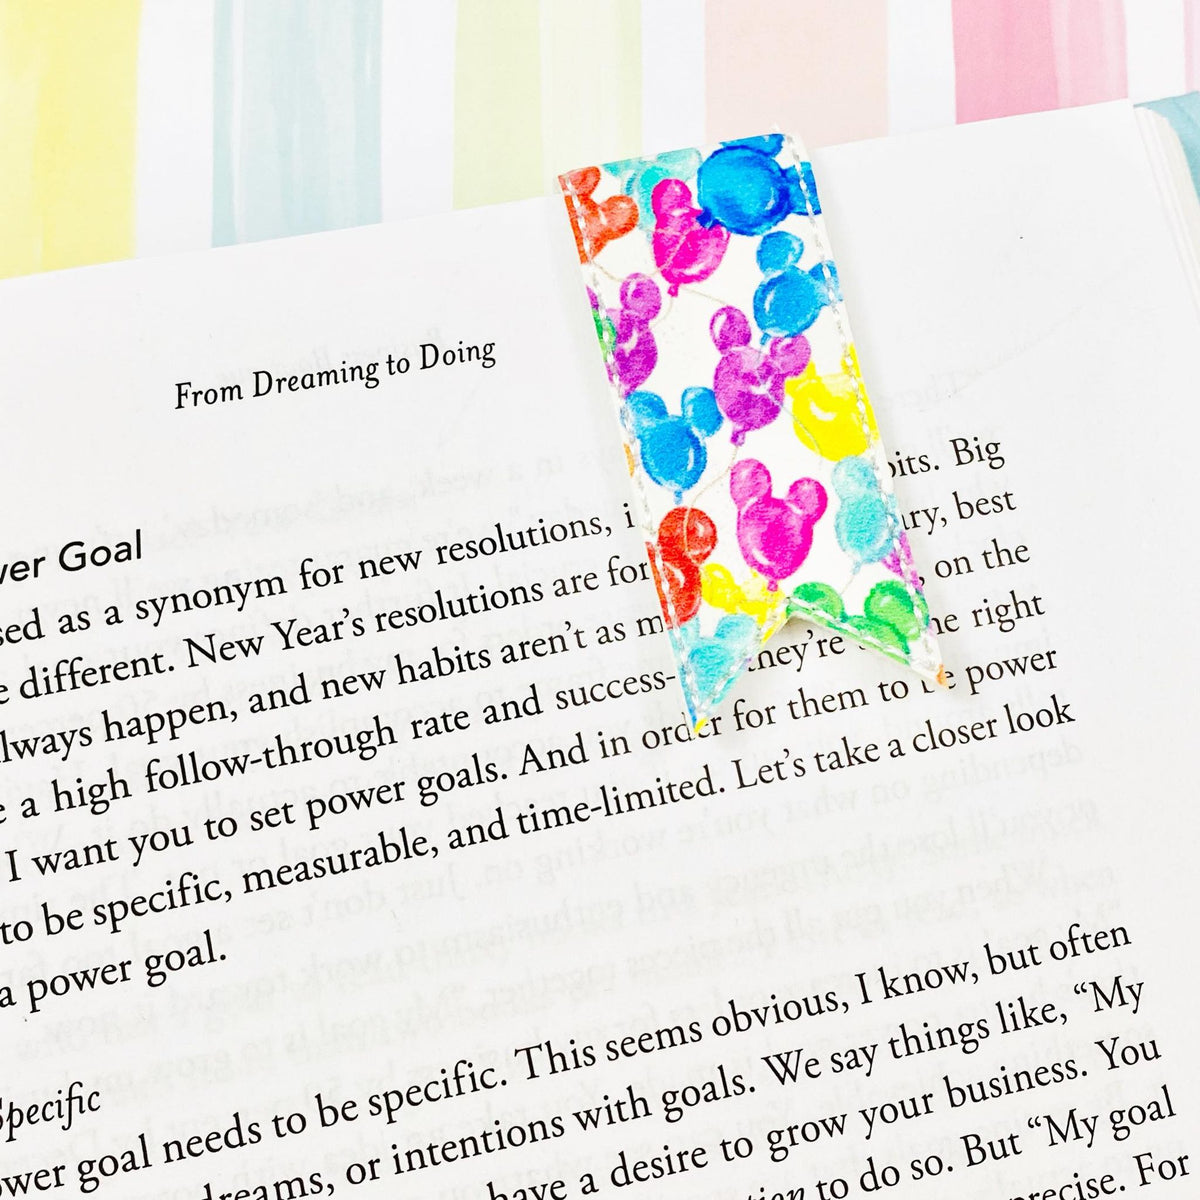 From Dreaming to Doing
Goal
as a synonym for new resolutions,
different. New Year's resolutions are for
happen, and new habits aren't as
a high follow-through rate and success-
I want you to set power goals. And in order for them to be power
to be specific, measurable, and time-limited. Let's take a closer look
a power goal.
Big
best
on the
they're right
Specific
goal needs to be specific. This seems obvious, I know, but often
or intentions with goals. We say things like, “My
have a desire to grow your business. You
to do so. But “My goal
For